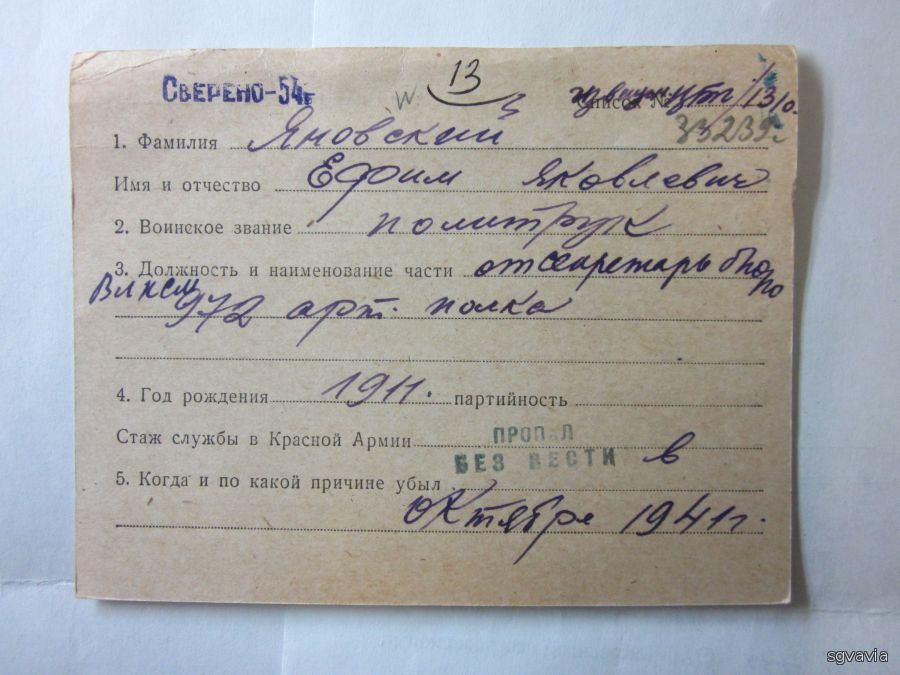 СВЕРЕНО-54г
13
Список №
13/0
33239с
1. Фамилия Яновский
Имя и отчество Ефим Яковлевич
2. Воинское звание политрук
3. Должность и наименование части отсекретарь бюро
ВЛКСМ 972 арт. полка
4. Год рождения 1911. партийность
Стаж службы в Красной Армии
ПРОПАЛ
БЕЗ ВЕСТИ в
5. Когда и по какой причине убыл
октябре 1941 г.
sgvavia